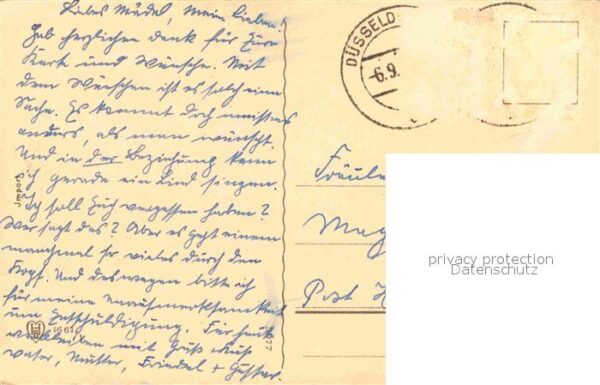 Liebes Mädel, mein Lieber!
Hab herzlichen Dank für Eure
Karte und Wünsche. Mit
dem Wünschen ist es solch eine
Sache. Es kommt doch meistens
anders, als man wünscht.
Und in der Beziehung kann
ich gerade ein Lied singen.
Ich soll Euch vergessen haben?
Wer sagt das? Aber es geht einem
manchmal so vieles durch den
Kopf. Und deswegen bitte ich
für meine Unaufmerksamkeit
um Entschuldigung. Für heut
verbleiben mit Gruß + Kuß
Vater, Mutter, Friedel +
DÜSSELD
-6.9.
Import
Post H
privacy protection
Datenschutz